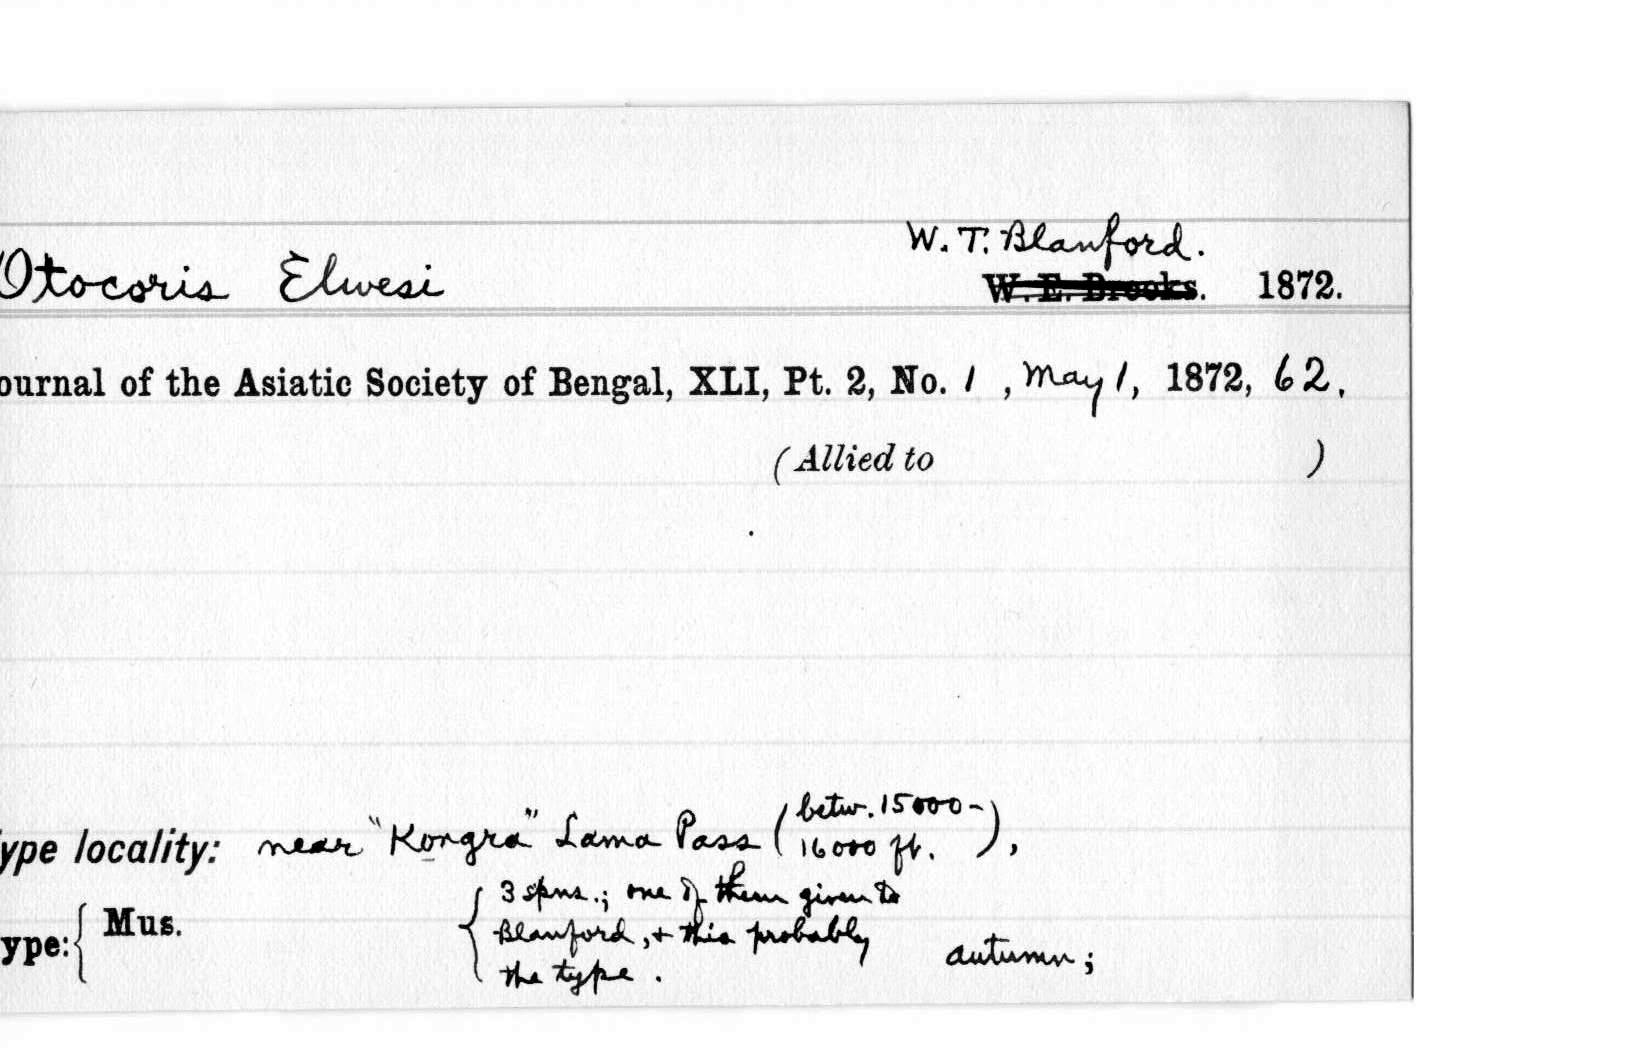 W. T. Blanford.
Otocoris Elwesi W. E. Brooks. 1872.
ournal of the Asiatic Society of Bengal, XLI, Pt. 2, No. 1, May 1, 1872, 62.
(Allied to )
ype locality: near "Kongra" Lama Pass (betw. 15000-
16000 ft.),
ype: { Mus. { 3 spns.; one of them given to
Blanford, + this probably autumn;
the type.